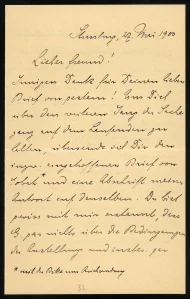 Hamburg, 29 Mai 1900
Lieber Freund!
Innigen Dank für Deinen lieben
Brief von gestern! Um Dich
über den weiteren Gang der Sache
ganz auf dem Laufenden zu
halten, übersende ich Dir den
inzw. eingetroffenen Brief von
und eine Abschrift meiner
Antwort auf denselben. Du bist
gewiss mit mir erstaunt, dass
G. gar nichts über die Bedingungen
der Anstellung und
* mit der Bitte um Rücksendung